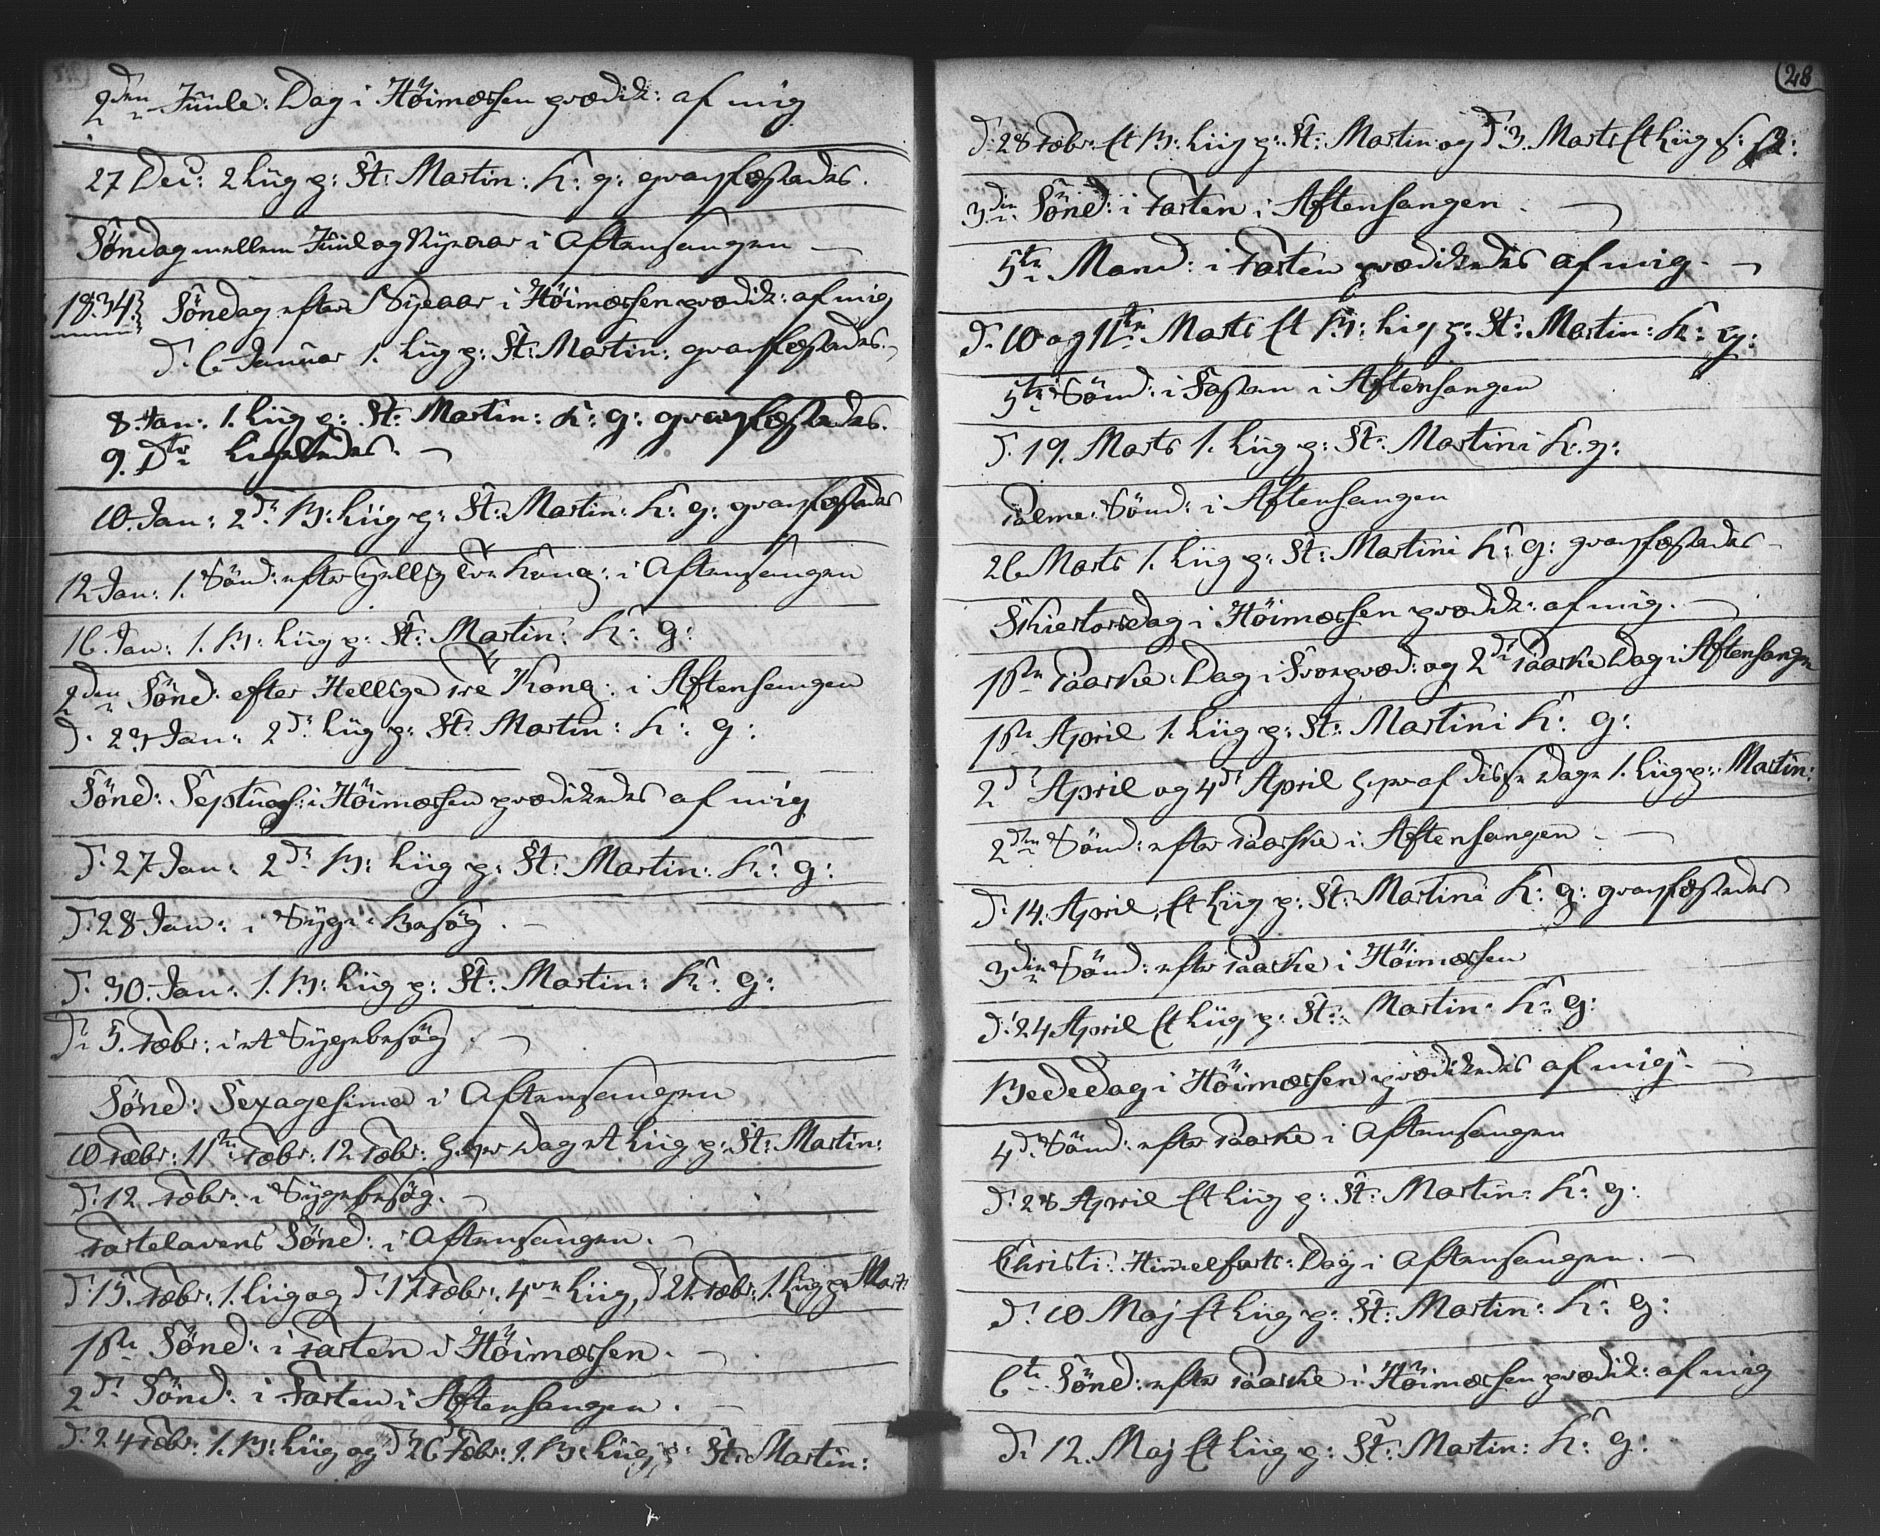 2den Juule: Dag i Höimæssen prædik: af mig
27 Dec: 2 Liig p: St: Martin: K: g: gravfæstedes.
Söndag mellem Juul og Nÿeaar i Aftensangen
1834. Söndag efter Nÿeaar i Höimæssen prædik: af mig
D. 6 Januar 1. Liig p: St: Martin: gravfæstedes.
8 Jan: 1. Liig p: St: Martin: K: g: gravfæstedes.
9. Dto ligeledes.
10. Jan: 2de B: Liig p: St: Martin: K: g: gravfæstedes
12 Jan: 1. Sönd: efter Hellig Tre Kong: i Aftensangen
16 Jan: 1. B: Liig p: St: Martin: K: g:
2den Sönd: efter Hellige Tre Kong: i Aftensangen
D. 23 Jan: 2de Liig p: St: Martin: K: g:
Sönd: Septuag: i Höimæssen prædikedes af mig
D. 27 Jan: 2de B: Liig p: St: Martin: K: g:
D. 28 Jan: i Syge: Besög.
D. 30. Jan: 1. B: Liig p: St: Martin: K: g:
D. 5. Febr: i et Sygebesög.
Sönd: Sexagesima i Aftensangen
10 Febr: 11te Febr: 12 Febr: hver Dag et Liig p: St: Martin:
D. 12 Febr: i Sygebesög.
Fastelavens Sönd: i Aftensangen.
D. 15. Febr: 1. Liig og D. 17 Febr: 4re Liig, D 21. Febr: 1. Liig p: Mart:
1ste Sönd: i Fasten i Höimæssen.
2de Sönd: i Fasten i Aftensangen.
D. 24 Febr: 1. B: Liig og D 26 Febr: 1. B: Liig p: St: Martin:
28
D. 28 Febr: Et B: Liig p: St: Martin og D. 3. Marts Et Liig
3die Sönd: i Fasten i Aftensangen.
5te Mand: i Fasten prædikedes af mig.
D. 10 og 11te Marts Et B: Liig p: St: Martin: K: g:
5te Sönd: i Fasten i Aftensangen
D. 19. Marts 1. Liig p: St: Martini K: g:
Palme: Sönd: i Aftensangen
26 Marts 1. Liig p: St: Martini K: g: gravfæstedes
Skiertorsdag i Höimæssen prædik: af mig.
1ste Paaske: Dag i Froepræd: og 2de Paaske Dag i Aftensangn
1ste April 1. Liig p: St: Martini K: g:
2de April og 4de April hver af disse Dage 1. Liig p: Martin:
2den Sönd: efter Paaske i Aftensangen
D. 14. April, Et Liig p: St: Martini K: g: gravfæstedes
3die Sönd: efter Paaske i Höimæssen
D. 24 April Et Liig p: St: Martin: K: g:
Bededag i Höimæssen prædikedes af mig.
4de Sönd: efter Paaske i Aftensangen
D. 28 April Et Liig p: St: Martin: K: g:
Christi: Himmelfarts: Dag i Aftensangen.
D. 10 Maj Et Liig p: St: Martin: K: g:
6te Sönd: efter Paaske i Höimæssen prædik: af mig
D. 12. Maj Et Liig p: St: Martin: K: g: